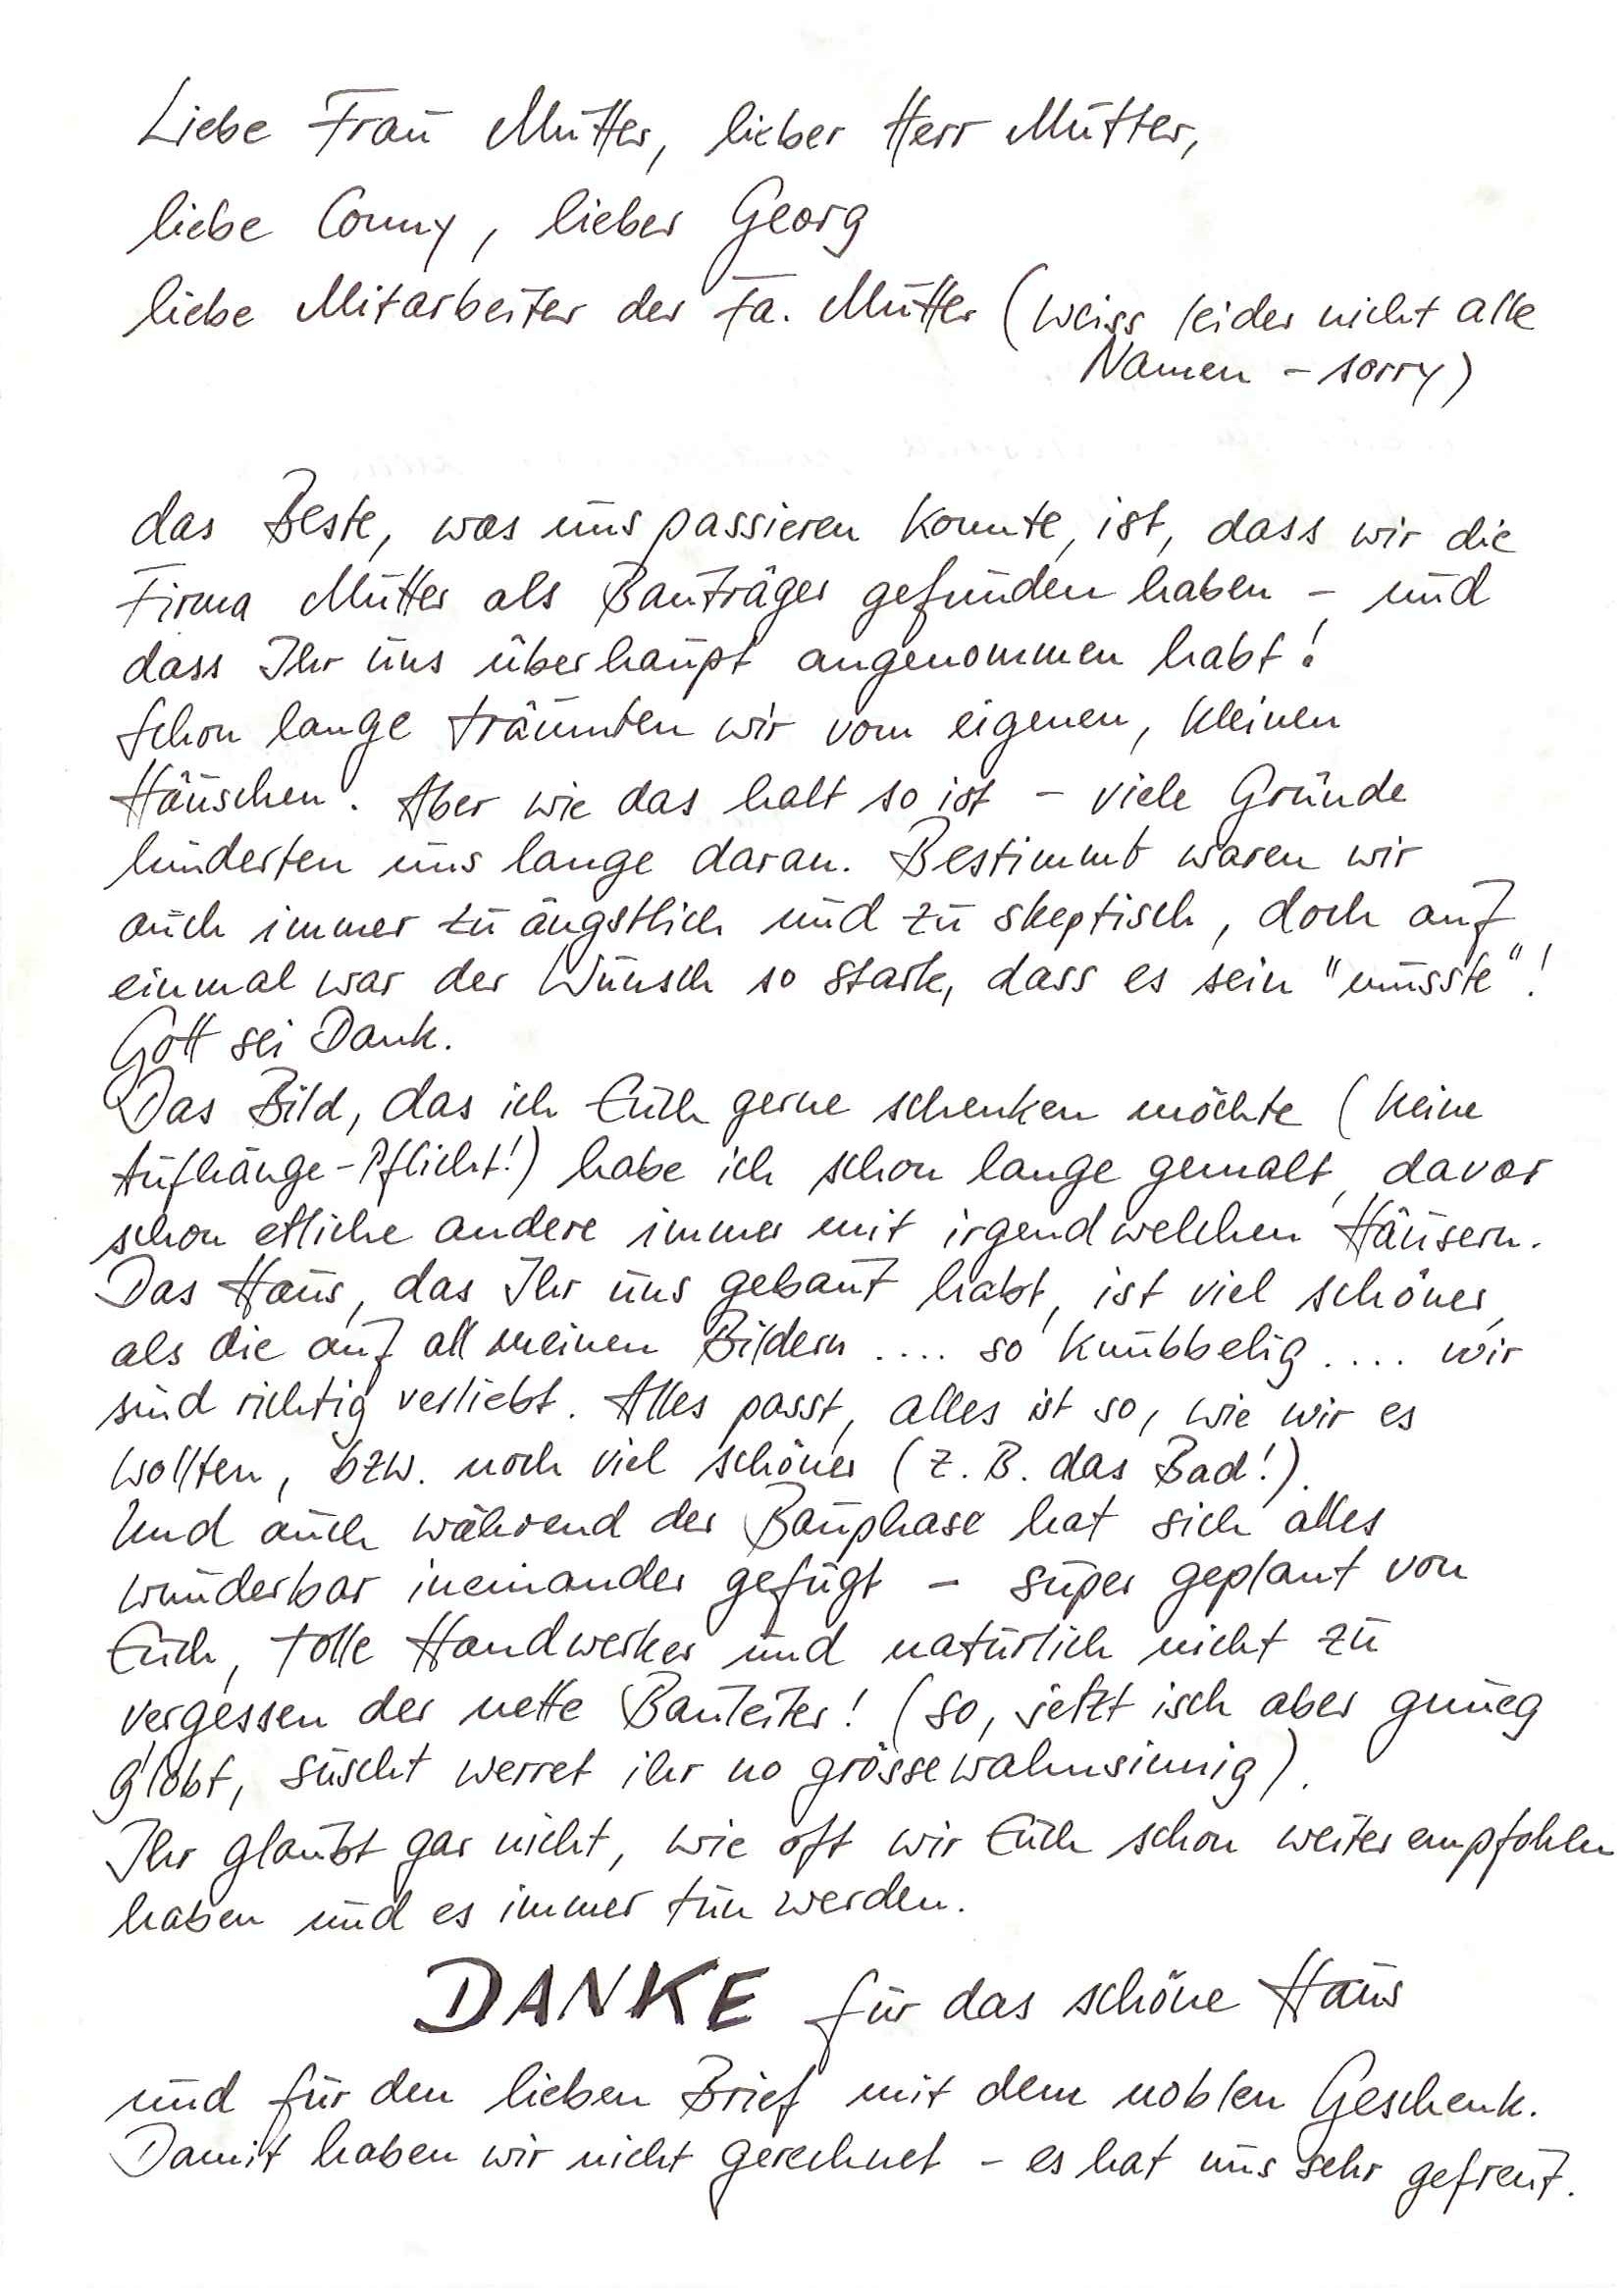 Liebe Frau Mutter, lieber Herr Mutter,
liebe Conny, lieber Georg
liebe Mitarbeiter der Fa. Mutter (weiss leider nicht alle
Namen - sorry)
das Beste, was uns passieren konnte, ist, dass wir die
Firma Mutter als Bauträger gefunden haben - und
dass Ihr uns überhaupt angenommen habt!
Schon lange träumten wir vom eigenen, kleinen
Häuschen. Aber wie das halt so ist - viele Gründe
hinderten uns lange daran. Bestimmt waren wir
auch immer zu ängstlich und zu skeptisch, doch auf
einmal war der Wunsch so stark, dass es sein "musste"!
Gott sei Dank.
Das Bild, das ich Euch gerne schenken möchte (keine
Aufhänge-Pflicht!) habe ich schon lange gemalt, davor
schon etliche andere immer mit irgendwelchen Häusern.
Das Haus, das Ihr uns gebaut habt, ist viel schöner,
als die auf all meinen Bildern .... so knubbelig .... wir
sind richtig verliebt. Alles passt, alles ist so, wie wir es
wollten, bzw. noch viel schöner (z. B. das Bad!).
Und auch während der Bauphase hat sich alles
wunderbar ineinander gefügt - super geplant von
Euch, tolle Handwerker und natürlich nicht zu
vergessen der nette Bauleiter! (so, jetzt isch aber gnueg
g'lobt, suscht werret ihr no grössewahnsinnig).
Ihr glaubt gar nicht, wie oft wir Euch schon weiterempfohlen
haben und es immer tun werden.
DANKE für das schöne Haus
und für den lieben Brief mit dem noblen Geschenk.
Damit haben wir nicht gerechnet - es hat uns sehr gefreut.